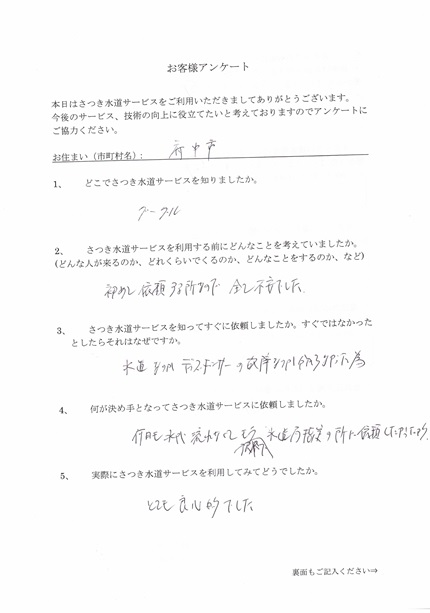 お客様アンケート
本日はさつき水道サービスをご利用いただきましてありがとうございます。
今後のサービス、技術の向上に役立てたいと考えておりますのでアンケートに
ご協力ください。
お住まい（市町村名）： 府中市
1、 どこでさつき水道サービスを知りましたか。
グーグル
2、 さつき水道サービスを利用する前にどんなことを考えていましたか。
(どんな人が来るのか、どれくらいでくるのか、どんなことをするのか、など)
初めて依頼する所なので 少し不安でした
3、 さつき水道サービスを知ってすぐに依頼しましたか。すぐではなかった
としたらそれはなぜですか。
水道なのか ディスポーザーの故障なのか分からなかった為
4、 何が決め手となってさつき水道サービスに依頼しましたか。
水道局指定の所に依頼したかったから
5、 実際にさつき水道サービスを利用してみてどうでしたか。
とても良心的でした
裏面もご記入ください⇒